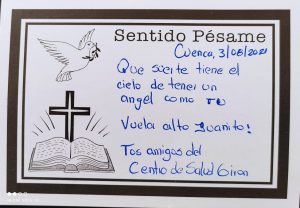 Sentido Pésame
Cuenca, 3/08/2021
Que suerte tiene el
cielo de tener un
angel como TU
Vuela alto Juanito!
Tus amigos del
Centro de Salud Giron